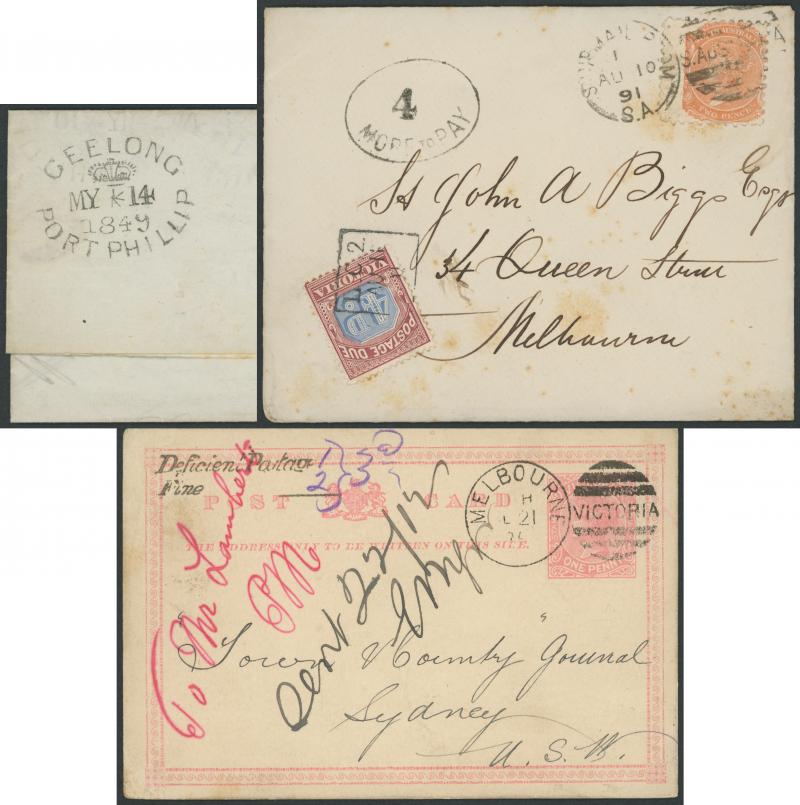 GEELONG
MY 14
1849
PORT PHILLIP
4
MORE TO PAY
SHIP MAIL ROOM
1
AU 10
91
S.A.
S. AUS
TWO PENCE
St John A Biggs Esqr
34 Queen Street
Melbourne
VICTORIA
4D
POSTAGE DUE
Deficient Postage
Fine
POST CARD
THE ADDRESS ONLY TO BE WRITTEN ON THIS SIDE.
MELBOURNE
H
21
VICTORIA
ONE PENNY
To Mr Lambert
PM
Sent 22/12
"Town & Country Journal"
Sydney
N.S.W.